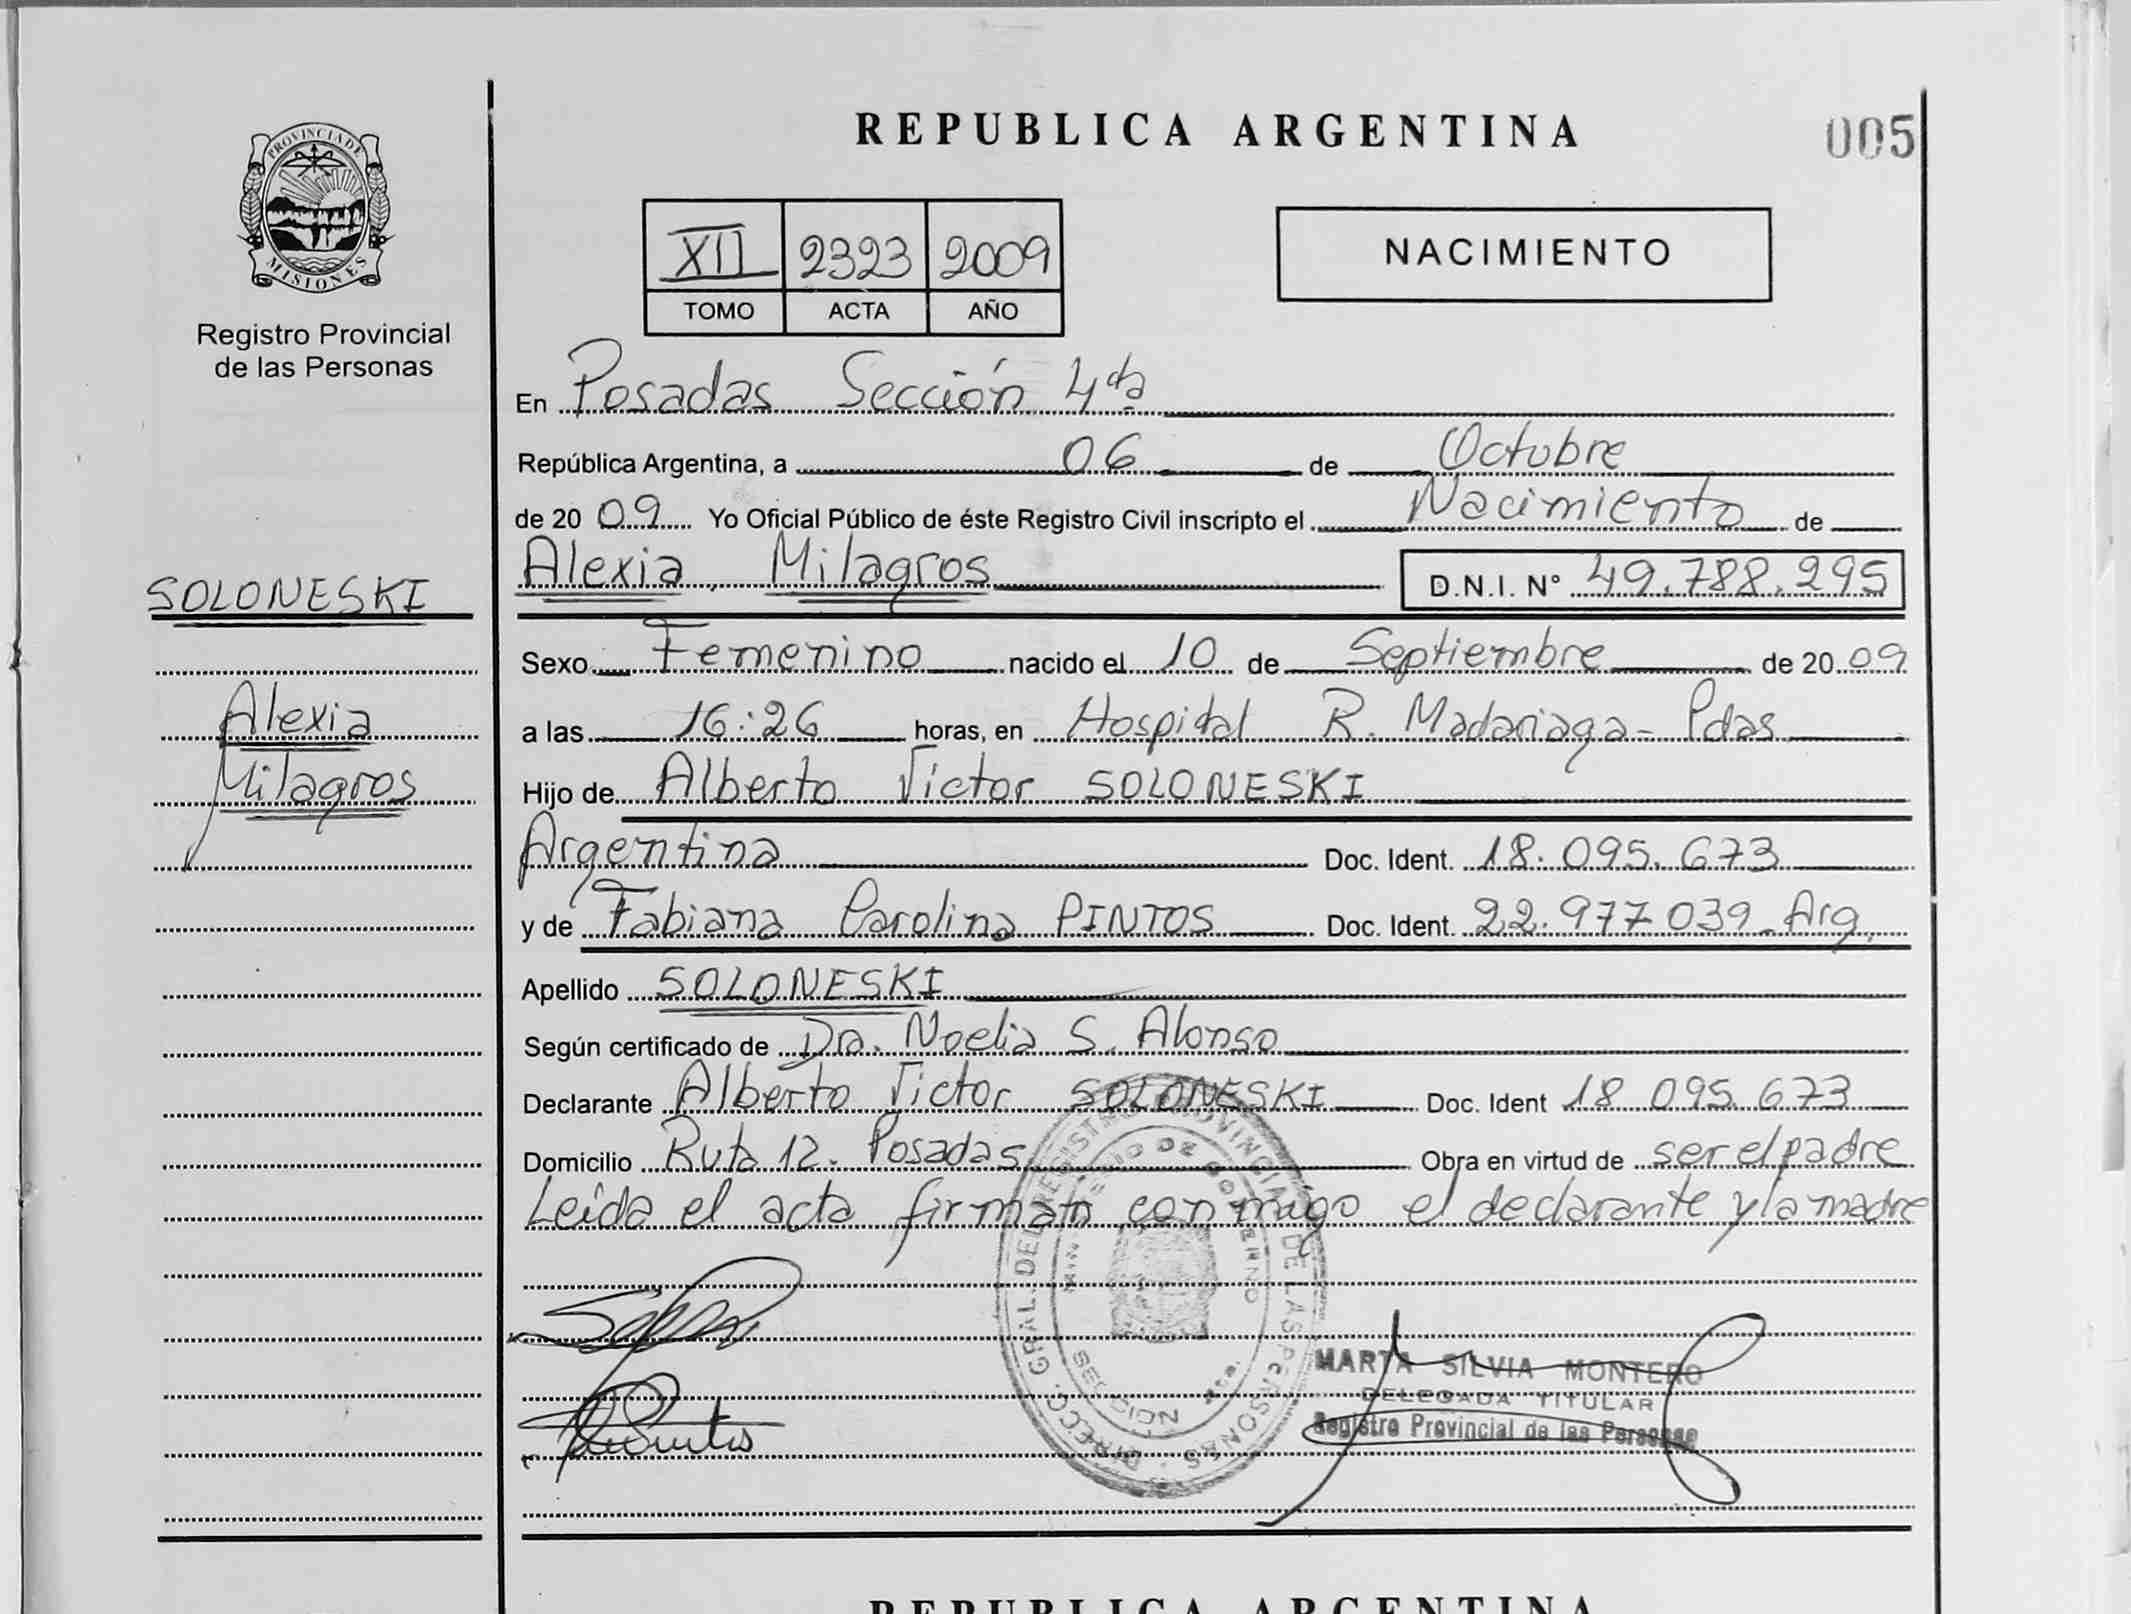 REPUBLICA ARGENTINA
005
PROVINCIA DE
MISIONES
Registro Provincial
de las Personas
XII 2323 2009
TOMO ACTA AÑO
NACIMIENTO
En Posadas Sección 4ta
República Argentina, a 06 de Octubre
de 20 09 Yo Oficial Público de éste Registro Civil inscripto el Nacimiento de
SOLONESKI
Alexia Milagros D.N.I. N° 49.788.295
Sexo Femenino nacido el 10 de Septiembre de 20 09
Alexia
Milagros
a las 16:26 horas, en Hospital R. Madariaga - Pdas
Hijo de Alberto Victor SOLONESKI
Argentina Doc. Ident. 18.095.673
y de Fabiana Carolina PINTOS Doc. Ident. 22.977.039 - Arg.
Apellido SOLONESKI
Según certificado de Dra. Noelia S. Alonso
Declarante Alberto Victor SOLONESKI Doc. Ident 18 095 673
Domicilio Ruta 12. Posadas Obra en virtud de ser el padre
Leída el acta firman conmigo el declarante y la madre
DIRECC. GRAL. DEL REGISTRO PROVINCIAL DE LAS PERSONAS
MINISTERIO DE GOBIERNO
MARTA SILVIA MONTERO
DELEGADA TITULAR
Registro Provincial de las Personas
REPUBLICA ARGENTINA